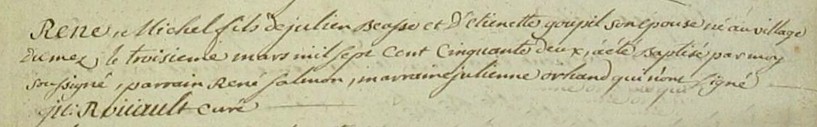 René, Michel fils de julien Beasse et d'etienette goupil son epouse né au village
Dumez, le troisieme mars mil sept cent cinquante deux, a été Baptisé, par moy
soussigné, parrain René salmon, marraine julienne orhand qui n'ont signé
Roüault curé